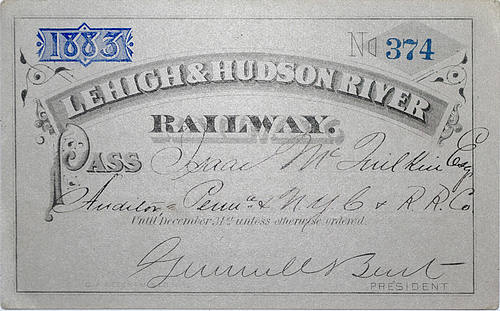 1883 No 374
LEHIGH & HUDSON RIVER
RAILWAY.
PASS Isaac Mc Quilkin Esq.
Penna & N.Y.C & R.R. Co
Until December 31st unless otherwise ordered.
Grinnell Burt
PRESIDENT